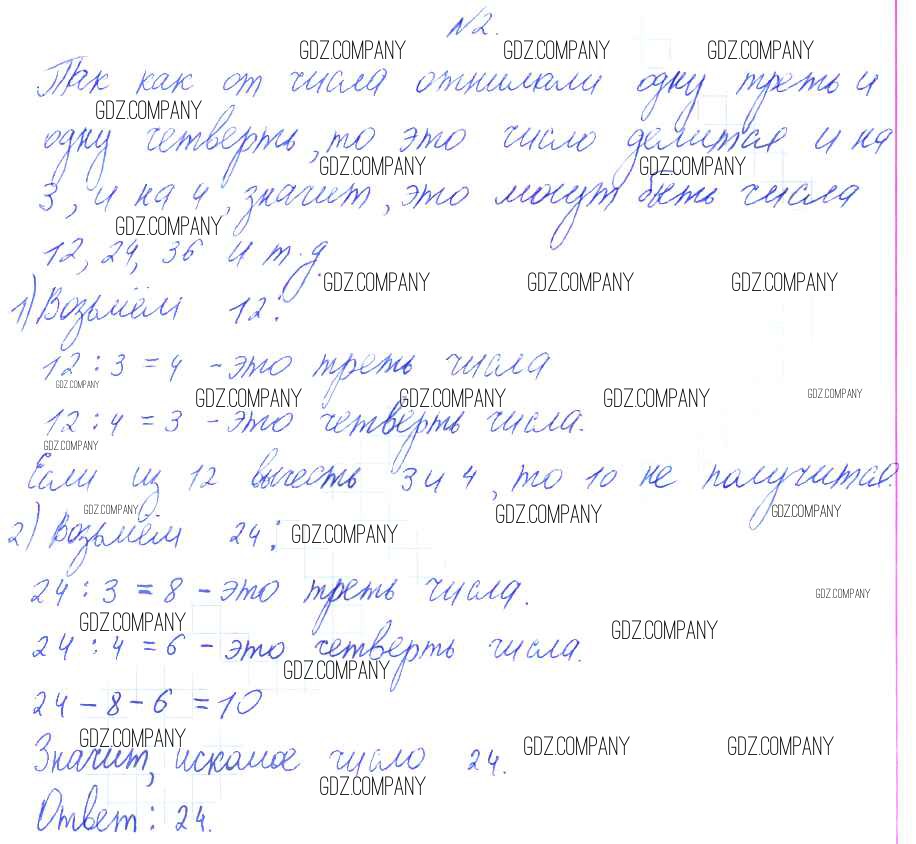 №2.
GDZ.COMPANY GDZ.COMPANY GDZ.COMPANY
Так как от числа отнимали одну треть и
GDZ.COMPANY
одну четверть, то это число делится и на
GDZ.COMPANY GDZ.COMPANY
3, и на 4, значит, это могут быть числа
GDZ.COMPANY
12, 24, 36 и т.д.
GDZ.COMPANY GDZ.COMPANY GDZ.COMPANY
1) Возьмём 12:
12 : 3 = 4 - это треть числа
GDZ.COMPANY
GDZ.COMPANY GDZ.COMPANY GDZ.COMPANY GDZ.COMPANY
12 : 4 = 3 - это четверть числа.
GDZ.COMPANY
Если из 12 вычесть 3 и 4, то 10 не получится.
GDZ.COMPANY GDZ.COMPANY GDZ.COMPANY
2) Возьмём 24: GDZ.COMPANY
24 : 3 = 8 - это треть числа.
GDZ.COMPANY
GDZ.COMPANY GDZ.COMPANY
24 : 4 = 6 - это четверть числа.
GDZ.COMPANY
24 - 8 - 6 = 10
GDZ.COMPANY GDZ.COMPANY GDZ.COMPANY
Значит, искомое число 24.
GDZ.COMPANY
Ответ: 24.